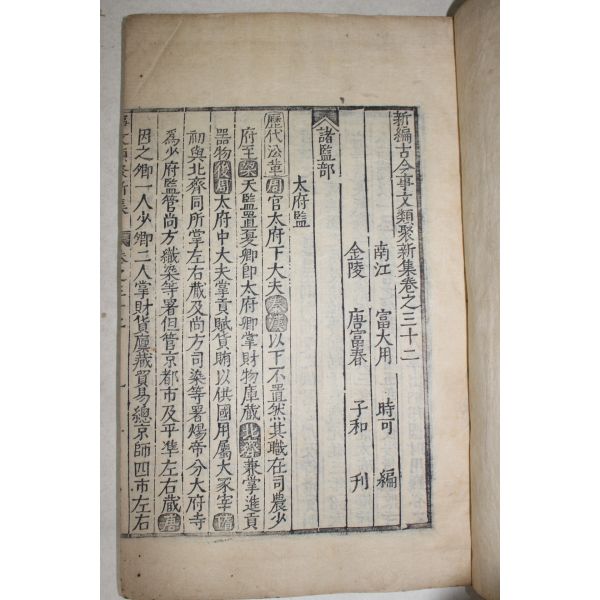 新編古今事文類聚新集卷之三十二
南江 富大用 時可 編
金陵 唐富春 子和 刊
諸監部
太府監
歷代沿革周官太府下大夫秦漢以下不置然其職在司農少
府至梁天監置夏卿即太府卿掌財物庫藏北齊兼掌進貢
器物後周太府中大夫掌貢賦貨賄以供國用屬大冢宰隋
初與北齊同所掌左右藏及尚方司染等署煬帝分大府寺
爲少府監管尚方織染等署但管京都市及平準左右藏唐
因之卿一人少卿二人掌財貨廩藏貿易總京師四市左右